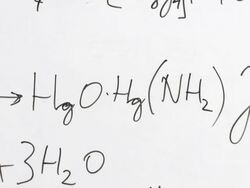 → HgO·Hg(NH₂)
+3H₂O